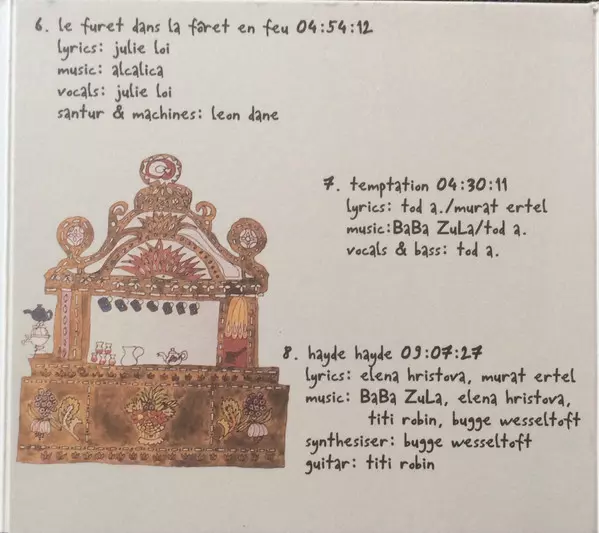 6. le furet dans la fôret en feu 04:54:12
lyrics: julie loi
music: alcalica
vocals: julie loi
santur & machines: leon dane
7. temptation 04:30:11
lyrics: tod a./murat ertel
music:BaBa ZuLa/tod a.
vocals & bass: tod a.
8. hayde hayde 09:07:27
lyrics: elena hristova, murat ertel
music: BaBa ZuLa, elena hristova,
titi robin, bugge wesseltoft
synthesiser: bugge wesseltoft
guitar: titi robin